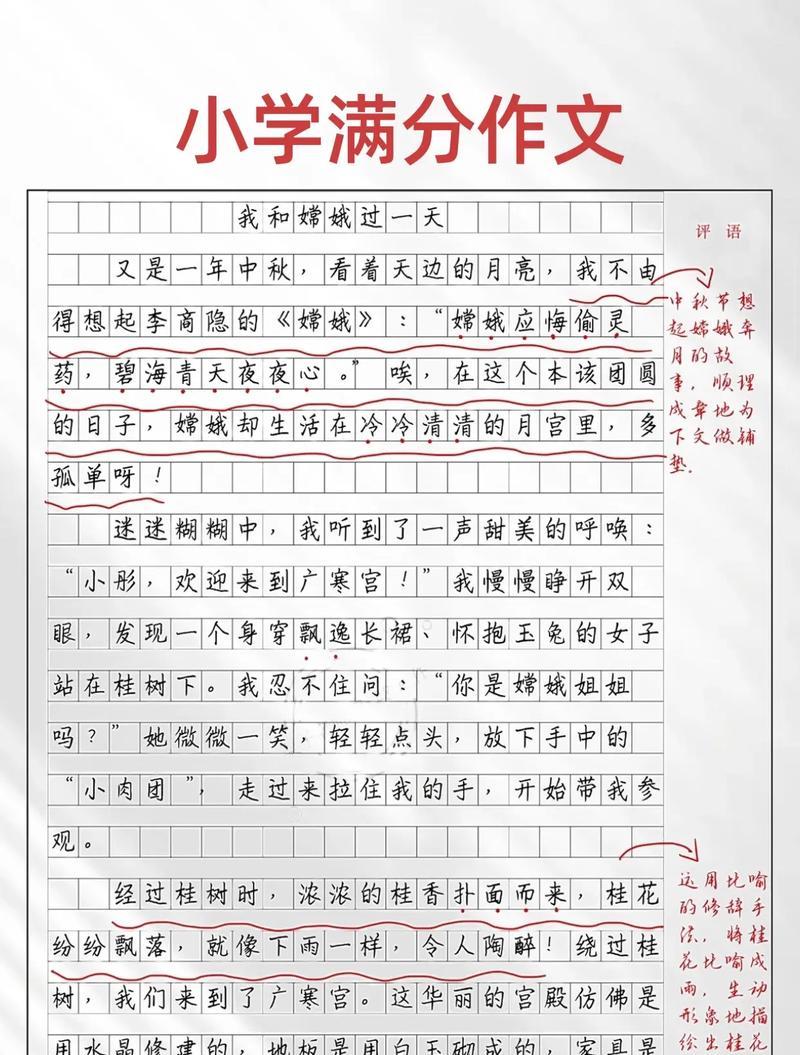 小学满分作文
我和嫦娥过一天
评语
又是一年中秋，看着天边的月亮，我不由
得想起李商隐的《嫦娥》：“嫦娥应悔偷灵
药，碧海青天夜夜心。”唉，在这个本该团圆
的日子，嫦娥却生活在冷冷清清的月宫里，多
孤单呀！
中秋节想
起嫦娥奔
月的故
事，顺理
成章地为
下文做铺
垫.
迷迷糊糊中，我听到了一声甜美的呼唤：
“小彤，欢迎来到广寒宫！”我慢慢睁开双
眼，发现一个身穿飘逸长裙、怀抱玉兔的女子
站在桂树下。我忍不住问：“你是嫦娥姐姐
吗？”她微微一笑，轻轻点头，放下手中的
“小肉团”，走过来拉住我的手，开始带我参
观。
经过桂树时，浓浓的桂香扑面而来，桂花
纷纷飘落，就像下雨一样，令人陶醉！绕过桂
树，我们来到了广寒宫。这华丽的宫殿仿佛是
用水晶修建的，地板是用白玉砌成的，家具是
运用比喻
的修辞手
法，将桂
花比喻成
雨，生动
形象地描
绘出桂花